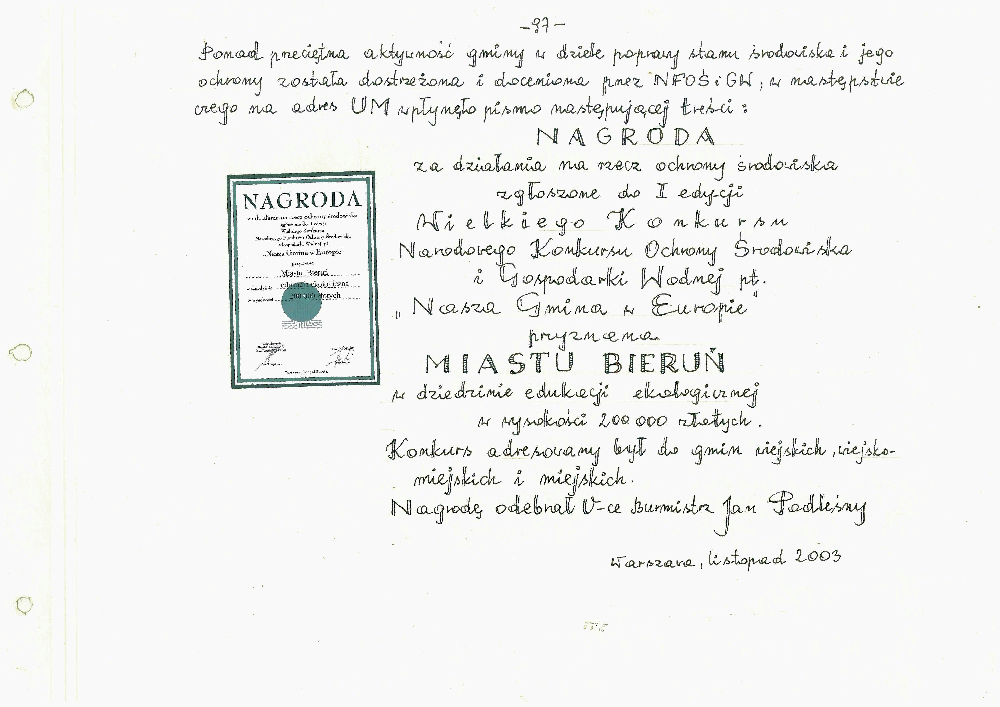 -97-
Ponad przeciętna aktywność gminy w dziele poprawy stanu środowiska i jego
ochrony została dostrzeżona i doceniona przez NFOŚiGW, w następstwie
czego na adres UM wpłynęło pismo następującej treści:
NAGRODA
za działania na rzecz ochrony środowiska
zgłoszone do I edycji
Wielkiego Konkursu
Narodowego Konkursu Ochrony Środowiska
i Gospodarki Wodnej pt.
„Nasza Gmina w Europie"
przyznana
MIASTU BIERUŃ
w dziedzinie edukacji ekologicznej
w wysokości 200 000 złotych.
Konkurs adresowany był do gmin wiejskich, wiejsko-
miejskich i miejskich.
Nagrodę odebrał V-ce Burmistrz Jan Podleśny
Warszawa, listopad 2003
NAGRODA
za działania na rzecz ochrony środowiska
„Nasza Gmina w Europie"